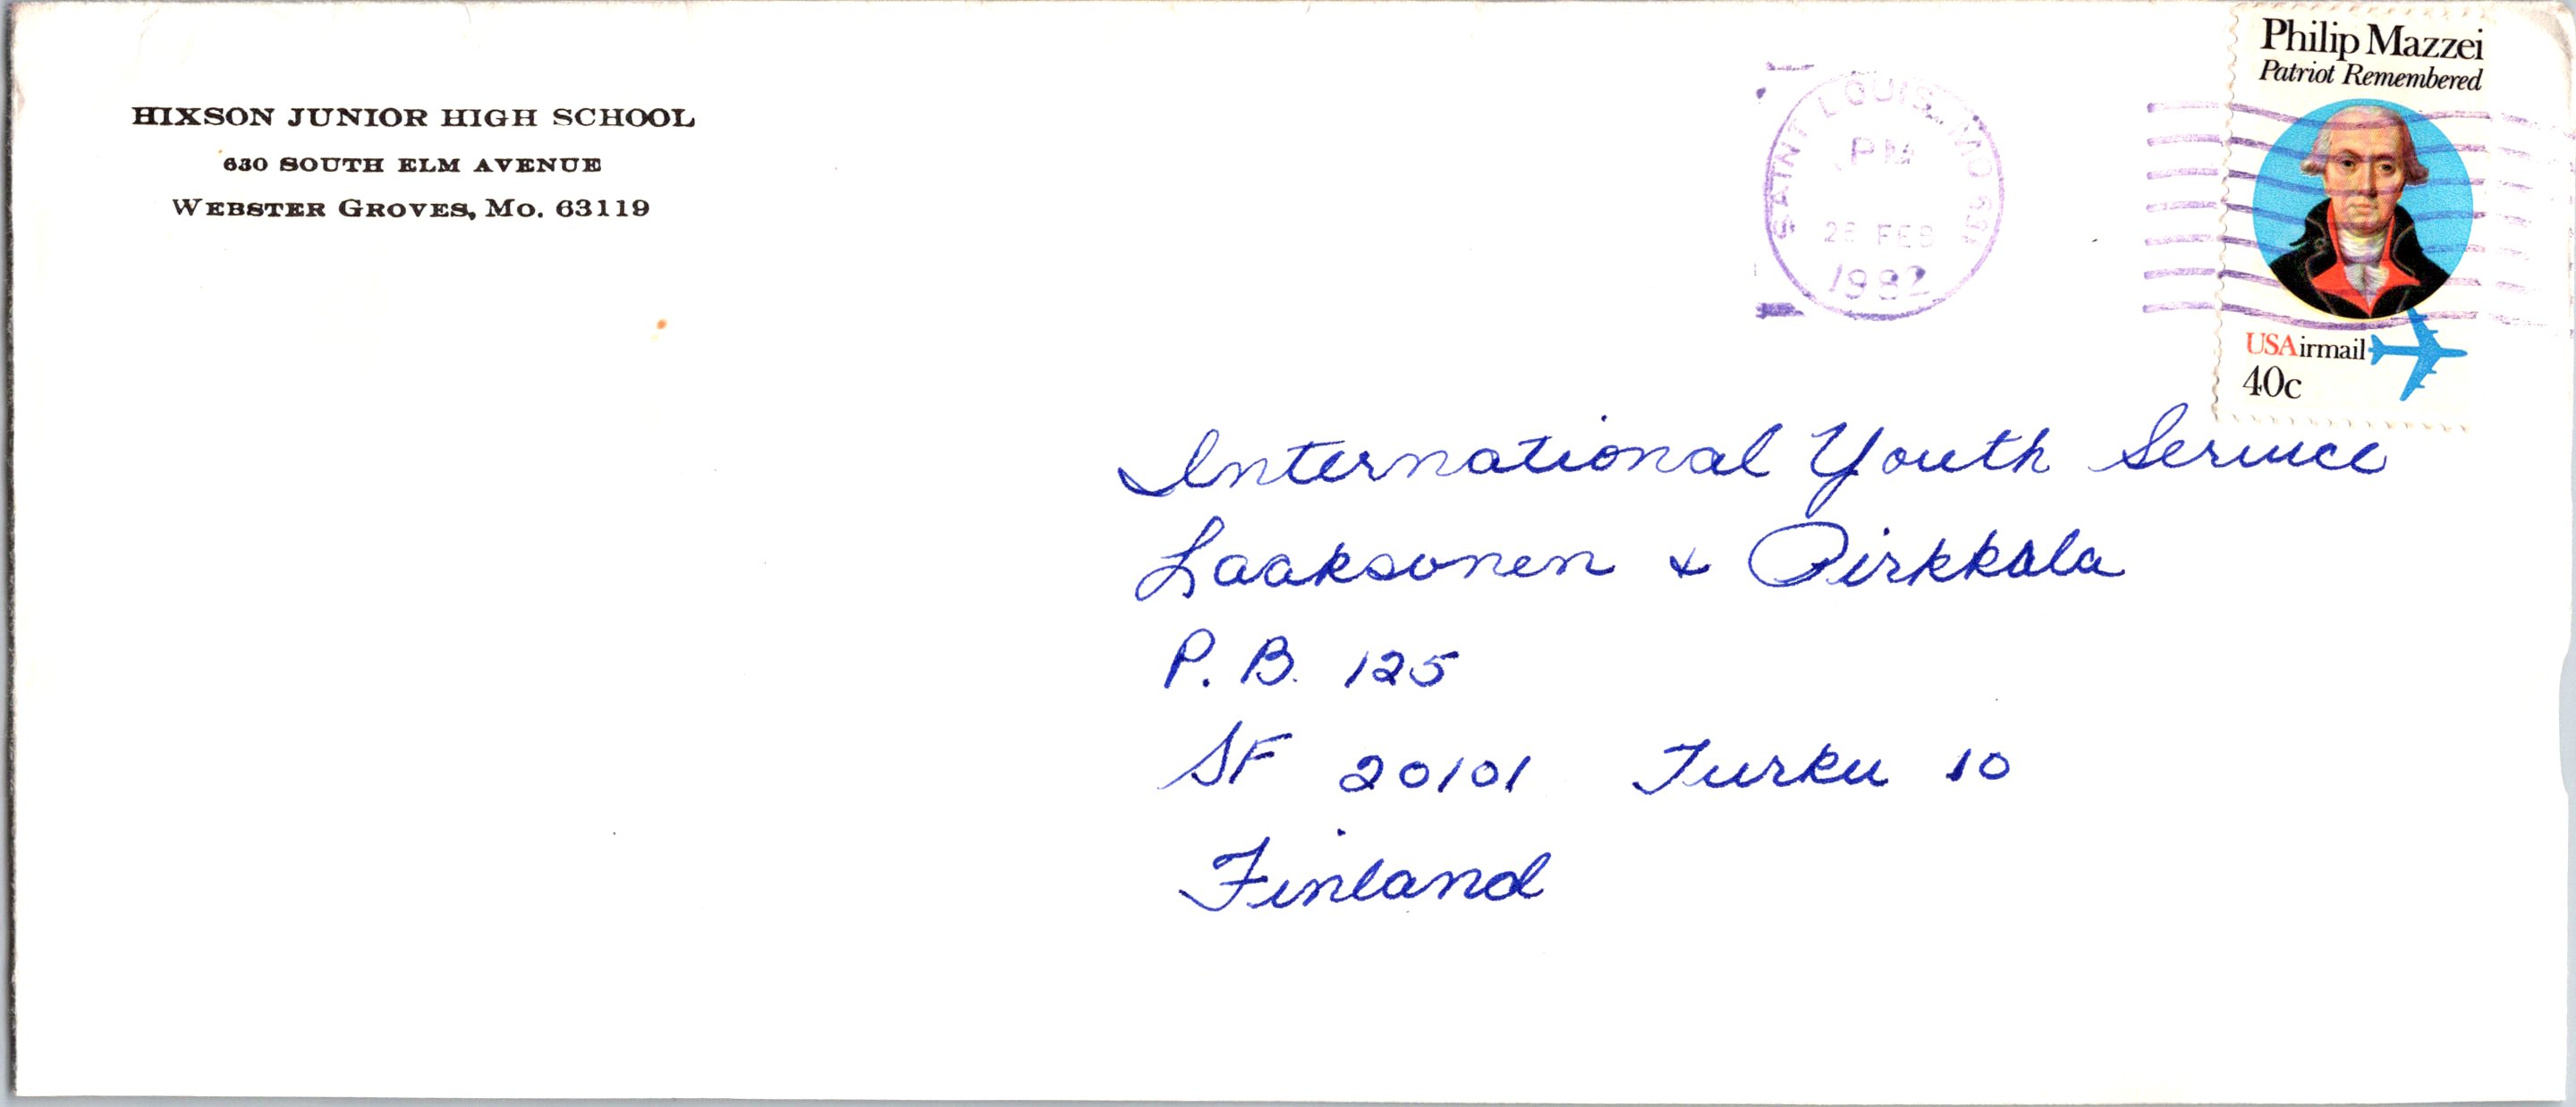 HIXSON JUNIOR HIGH SCHOOL
630 SOUTH ELM AVENUE
WEBSTER GROVES, MO. 63119
SAINT LOUIS, MO
PM
FEB
1982
Philip Mazzei
Patriot Remembered
USAirmail
40c
International Youth Service
Laaksonen & Pirkkala
P. B. 125
SF 20101 Turku 10
Finland